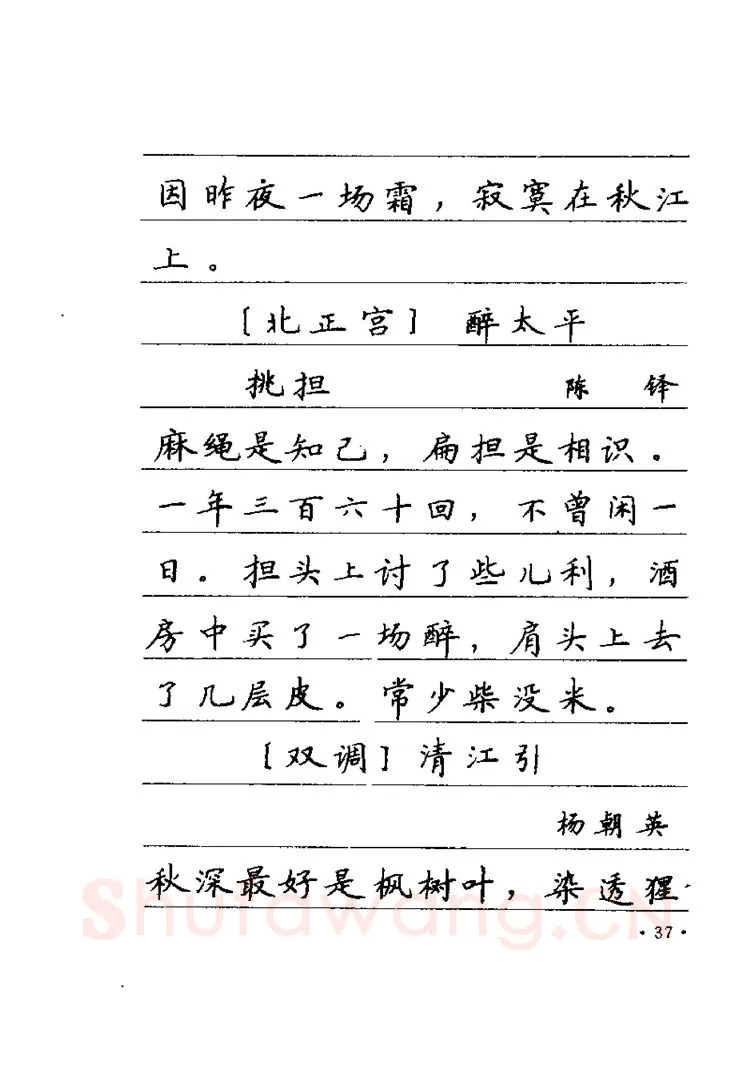 因昨夜一场霜，寂寞在秋江
上。
［北正宫］ 醉太平
挑担 陈 铎
麻绳是知己，扁担是相识。
一年三百六十回，不曾闲一
日。担头上讨了些儿利，酒
房中买了一场醉，肩头上去
了几层皮。常少柴没米。
［双调］清江引
杨朝英
秋深最好是枫树叶，染透猩
Shufawang.CN
·37·